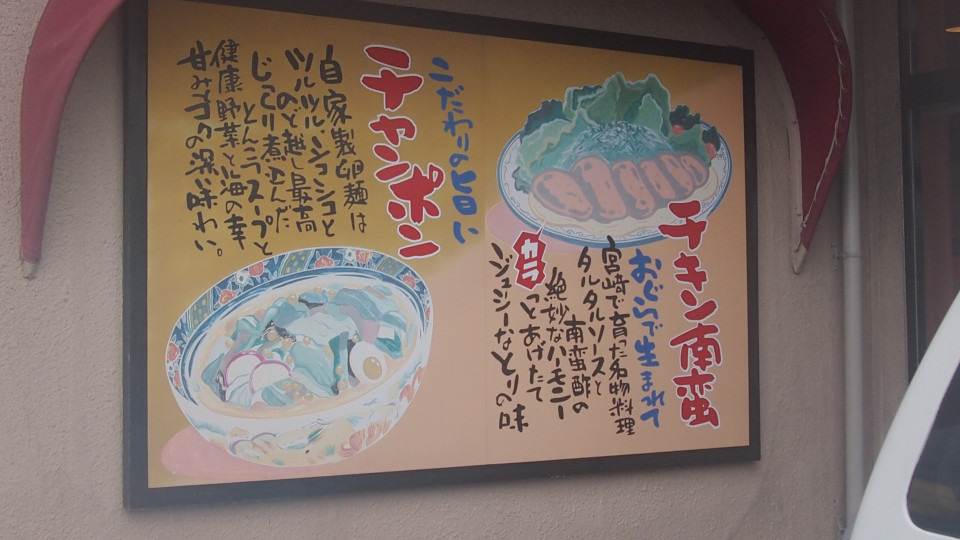 チキン南蛮
おぐらで生まれて
宮崎で育った名物料理
タルタルソースと
南蛮酢の
絶妙なハーモニー
カラっとあげたて
ジューシーなとりの味
こだわりの旨い
チャンポン
自家製卵麺は
ツルツル、シコシコと
のど越し最高
じっくり煮込んだ
とんガラスープと
健康野菜と海の幸
甘みコクの深味わい。